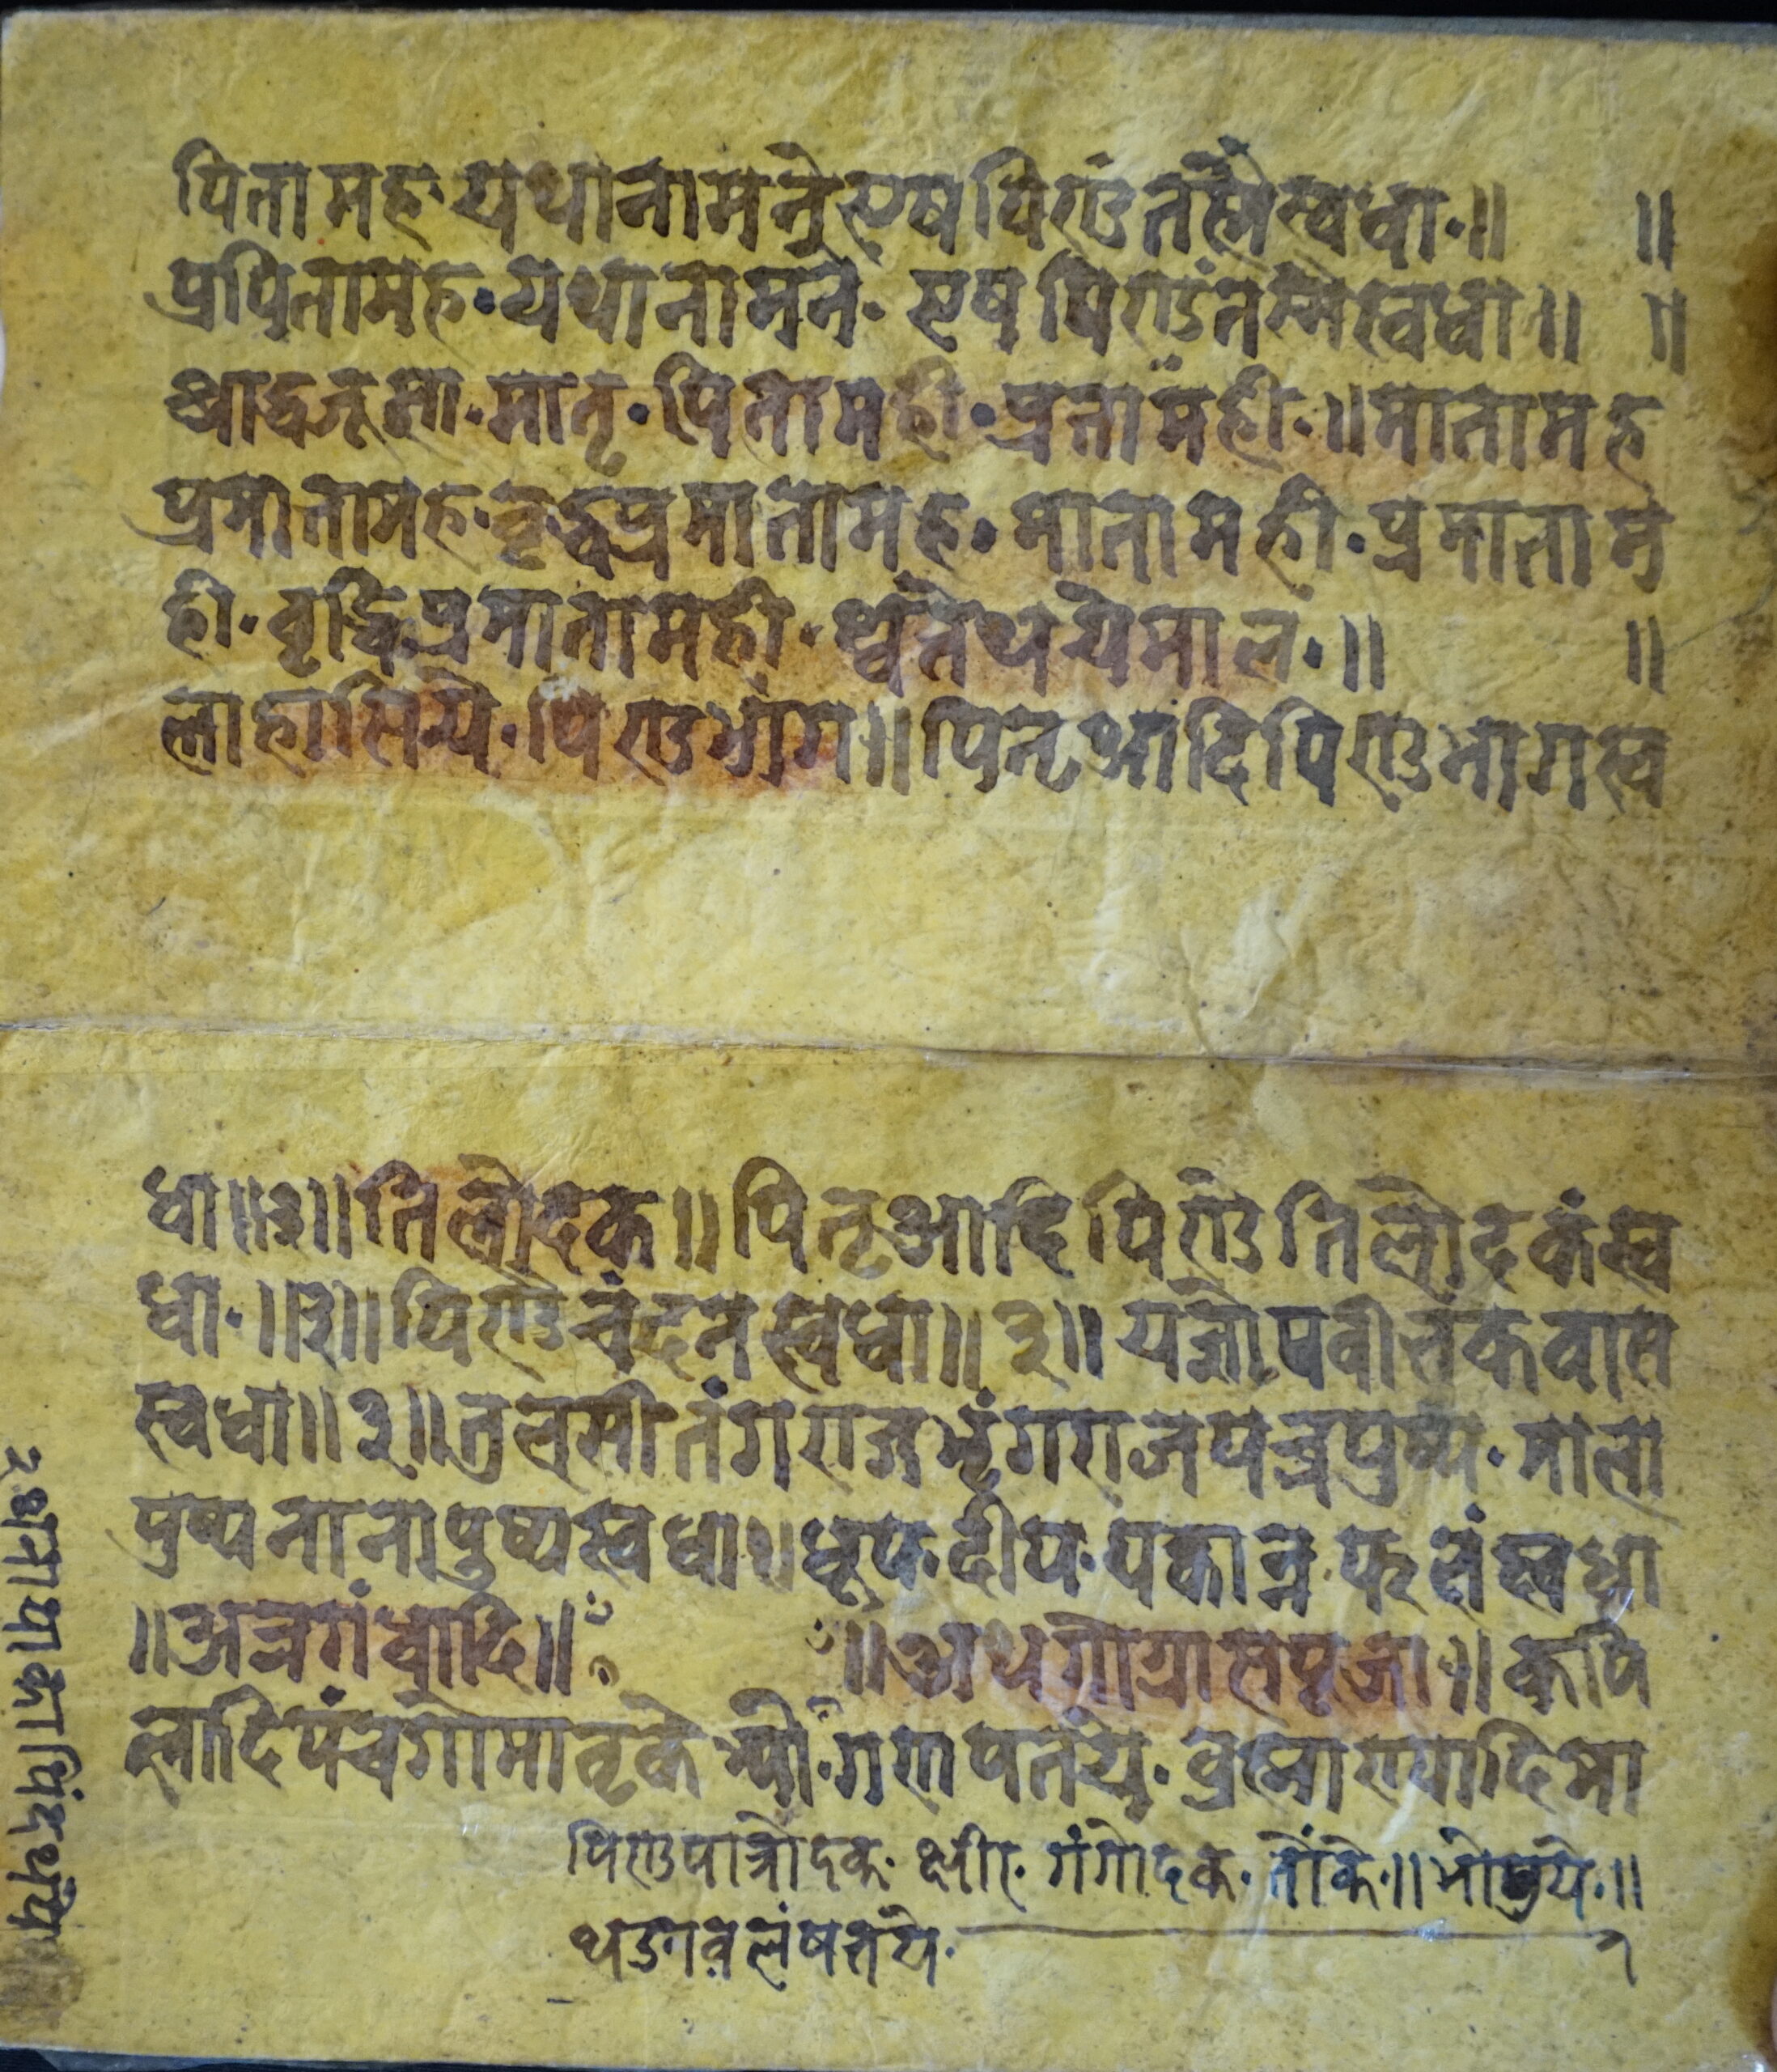 पितामह यथा नामने एष पिण्डं तस्मै स्वधा ॥ ॥
प्रपितामह यथा नामने एष पिण्डं तस्मै स्वधा ॥ ॥
श्राद्धजूसा मातृ पितामही प्रतामही ॥ मातामह
प्रमातामह वृद्धप्रमातामह मातामही प्रमाताम
ही वृद्धिप्रमातामही ध्वतेथयेमाल ॥ ॥
लाहासिये पिण्डभाग ॥ पितृआदिपिण्डभागस्व
धा ॥३॥ तिलोदक ॥ पितृआदिपिण्डतिलोदकंस्व
धा ॥३॥ पिण्डचंदनस्वधा ॥३॥ यज्ञोपवीतंकवास
स्वधा ॥३॥ तुलसीतंगराजभृंगराजपत्रपुष्प माला
पुष्पनानापुष्पस्वधा ॥ धूप दीप पक्वान्न फलंस्वधा
॥ अत्रगंधादि ॥ ॥ अथगोग्रासपूजा ॥ कपि
लादिपंचगोमातृकेभ्यो गणपतये ब्रह्माण्यादिमा
पिण्डपात्रोदक क्षीर गंगोदक तोंके ॥